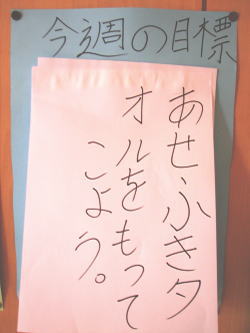 今週の目標
あせふきタ
オルをもって
こよう。